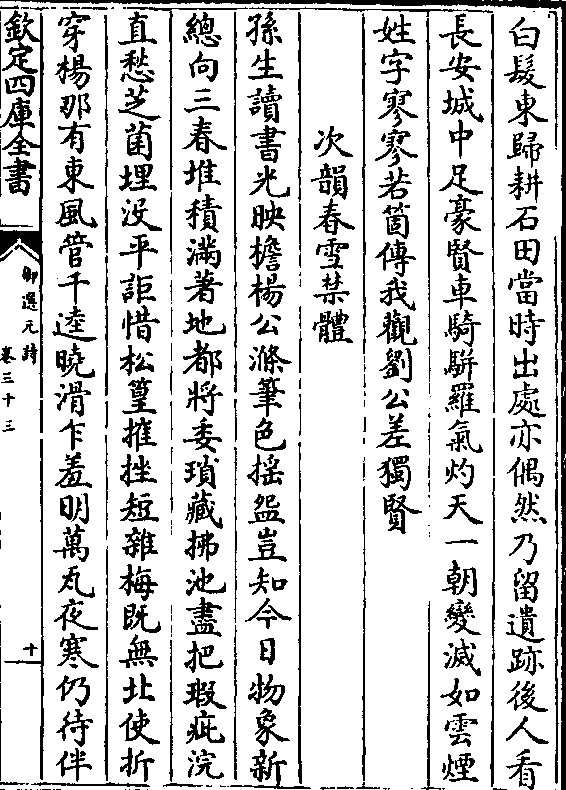 白髮東歸耕石田當時出處亦偶然乃留遺跡後人看
長安城中足豪賢車騎駢羅氣灼天一朝變滅如雲煙
姓字寥寥若箇傳我觀劉公差獨賢
次韻春雪禁體
孫生讀書光映檐楊公滌筆色搖盌豈知今日物象新
總向三春堆積滿著地都將委瑣藏拂池盡把瑕疵浣
直愁芝菌埋没平詎惜松篁摧挫短雜梅既無北使折
穿楊那有東風管千逵曉滑乍羞明萬瓦夜寒仍待伴
欽定四庫全書
御選元詩
卷三十三
十